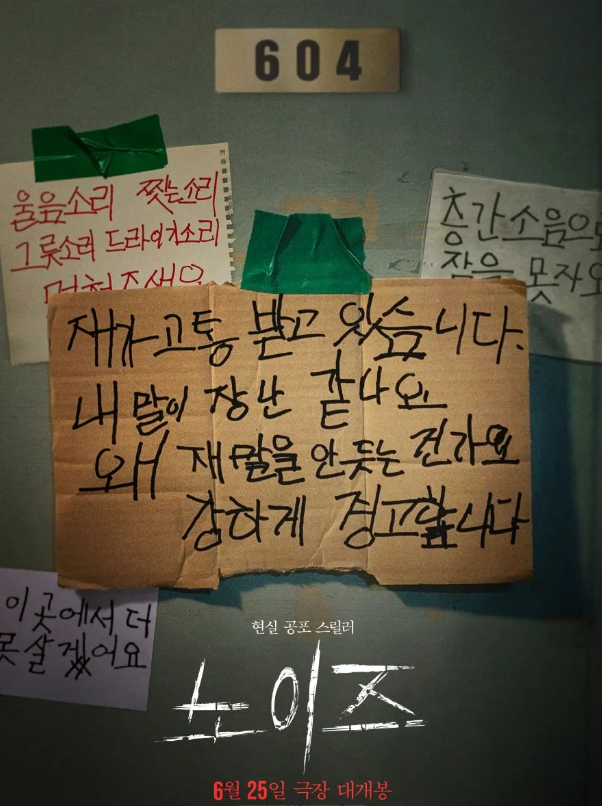 604
울음소리 찢는소리
그릇소리 드라이기소리
멈춰주세요
층간소음으로
잠을 못자요
재가 고통 받고 있습니다.
내 말이 장난 같나요
왜 재 말을 안 듣는 건가요
강하게 경고합니다
이곳에서 더
못살겠어요
현실 공포 스릴러
노이즈
6월 25일 극장 대개봉